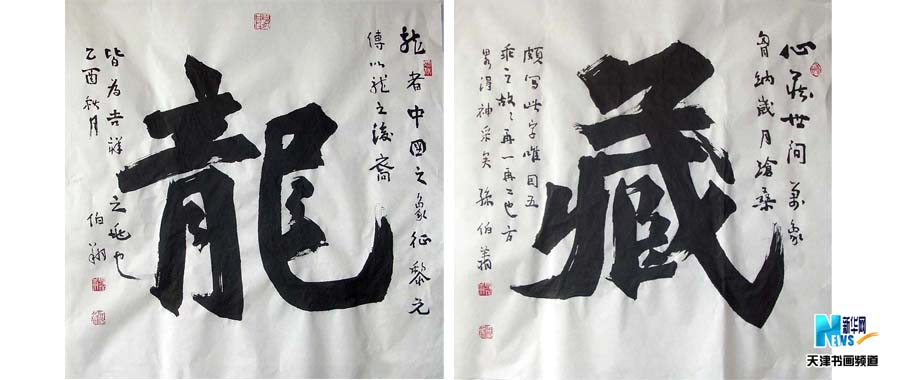 龍
龍者中国之象征黎元
傳以龍之後裔
皆為吉祥之兆也
乙酉秋月 伯翔
藏
心藏世间萬象
胷納歲月滄桑
頗写此字唯因五
乖之故之再一再二也方
畧得神采矣 孫伯翔
NEWS 新华网
天津书画频道